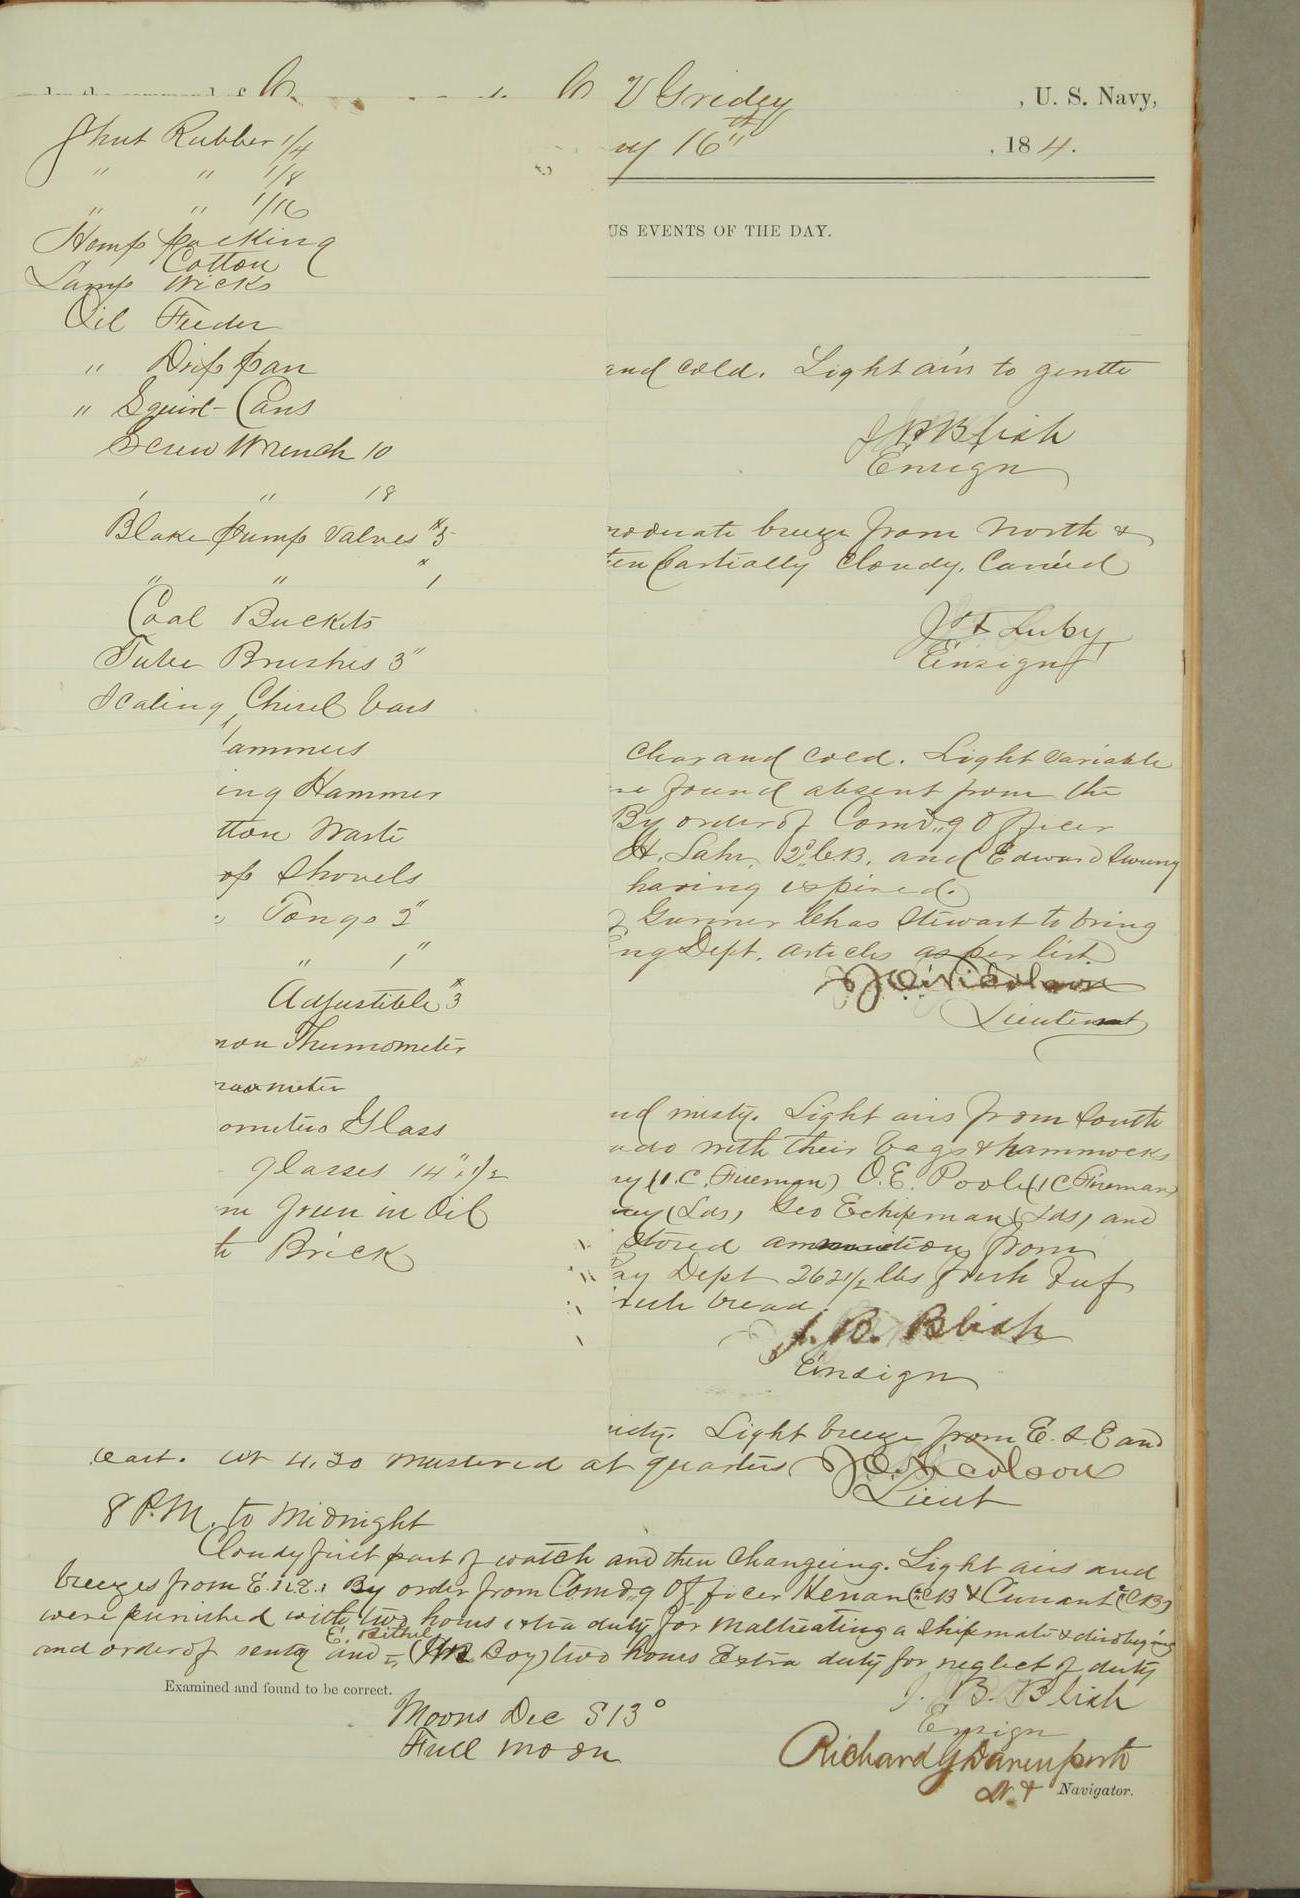 V Gridley , U. S. Navy,
16th , 184.
US EVENTS OF THE DAY.
Sheet Rubber 1/4
" " 1/8
" " 1/16
Hemp packing
Cotton
Lamp Wicks
Oil Feeder
" Drip pan
" Squirt Cans
Screw Wrench 10
" " 18
Blake pump Valves # 3
" " " 1
Coal Buckets
Tube Brushes 3"
Scaling Chisel bars
ammers
ing Hammer
tton Waste
Shovels
" Tongs 2"
" 1"
Adjustible # 3
Thermometer
ometer Glass
glasses 14" 1/2
Green in Oil
Brick
and cold. Light airs to gentle
J B Blish
Ensign
moderate breeze from North &
Partially Cloudy. Carried
Jno F Luby
Ensign
Clear and cold. Light variable
found absent from the
By order of Comd'g Officer
H. Lahr, and Edward
having expired.
Gunner Chas Stewart to bring
Eng Dept. articles as per list
J O Nicolson
Lieutenant
misty. Light airs from South
with their bags & hammocks
(1.C. Fireman) O.E. Poole (1C Fireman)
(Lds) Geo Echipman (Lds) and
Stored ammunition from
Pay Dept 262 1/2 lbs fresh beef
bread
J. B. Blish
Ensign
misty. Light breeze from E.S.E and
east. At 4.30 mustered at quarters J O Nicolson
Lieut
8 P.M. to Midnight
Cloudy first part of watch and then Changeing. Light airs and
breezes from E.N.E. By order from Comdg Officer Kenan & Currant
were punished with two hours extra duty for maltreating a Shipmate & disobeying
E. Bithel
and order of sentry and (Boy) two hours Extra duty for neglect of duty
J. B. Blish
Ensign
Examined and found to be correct.
Moons Dec S 13°
Full moon
Richard G Davenport
Navigator.